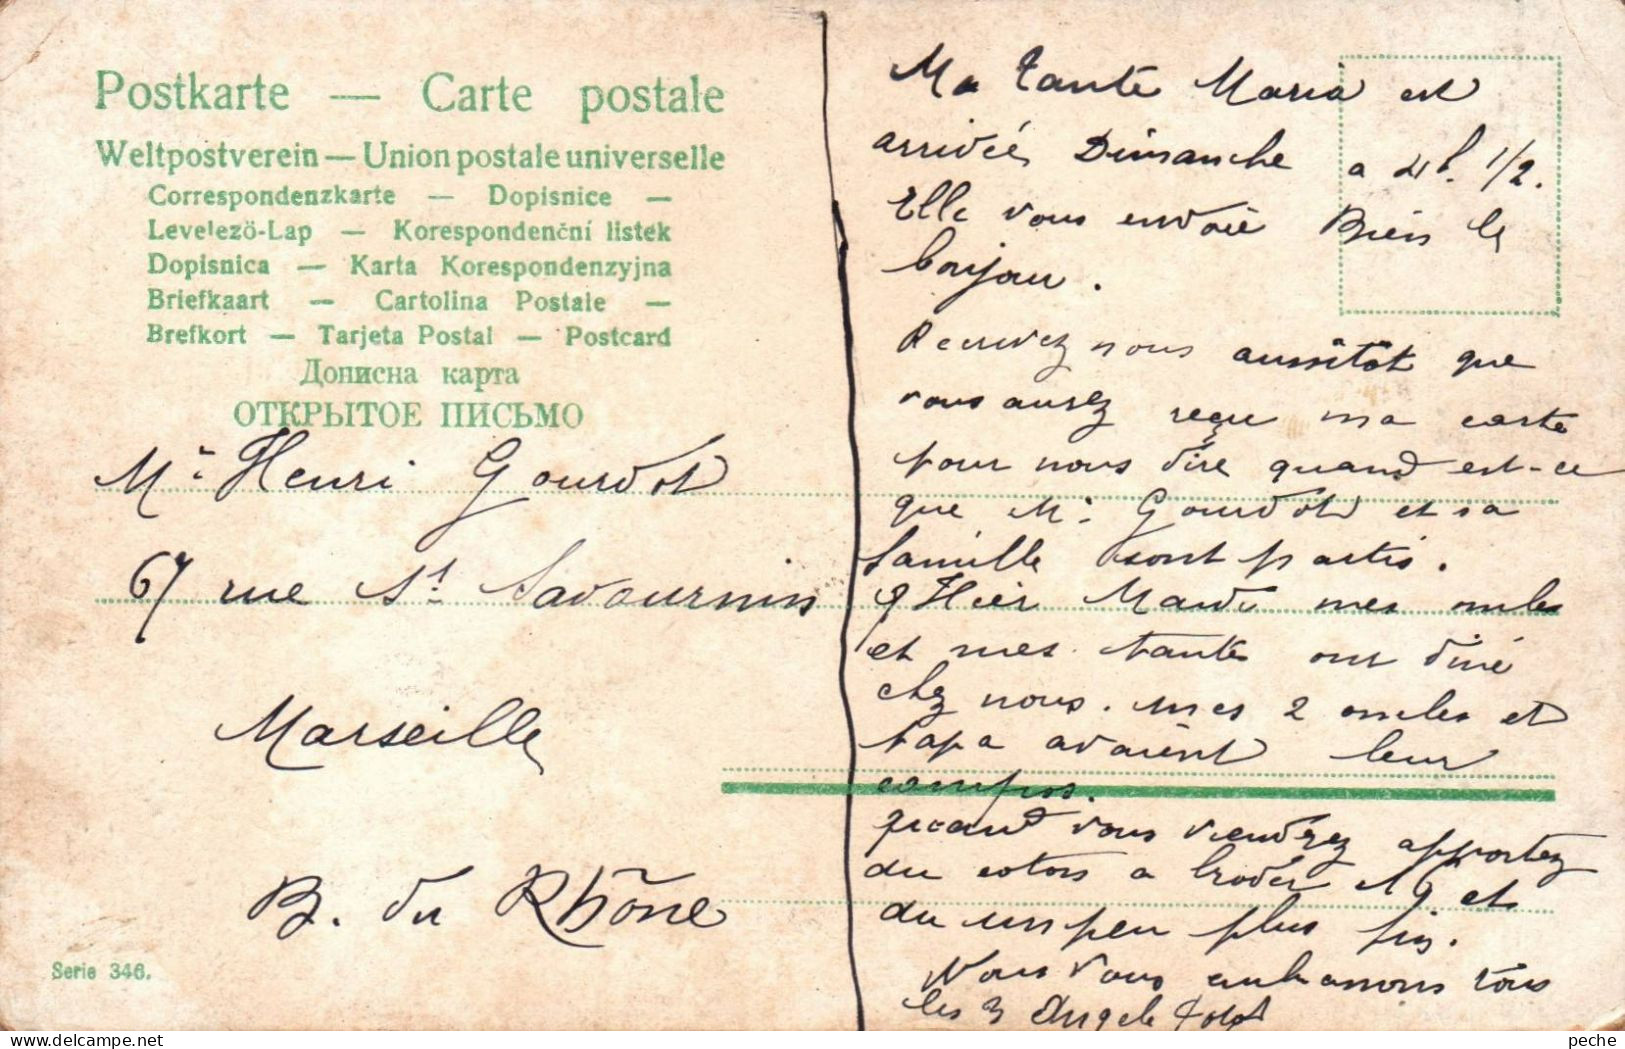 Postkarte — Carte postale
Weltpostverein — Union postale universelle
Correspondenzkarte — Dopisnice —
Levelező-Lap — Korespondenční listek
Dopisnica — Karta Korespondenzyjna
Briefkaart — Cartolina Postale —
Brefkort — Tarjeta Postal — Postcard
Дописна карта
ОТКРЫТОЕ ПИСЬМО
Mr Henri Gourdot
67 rue St Savournin
Marseille
B. du Rhône
Serie 346.
Ma tante Maria est
arrivée Dimanche a 4h. 1/2.
Elle vous envoie Bien le
bonjou.
Recrivez nous aussitôt que
vous aurez reçu ma carte
pour nous dire quand est-ce
que Mr Gourdot et sa
famille sont partis.
Hier Mardi mes oncles
et mes tantes ont diné
chez nous. mes 2 oncles et
papa avaient leur
campos.
quand vous viendrez apportez
du coton a broder et
du un peu plus fin.
Nous vous embrassons tous
les 3 Angele
peche